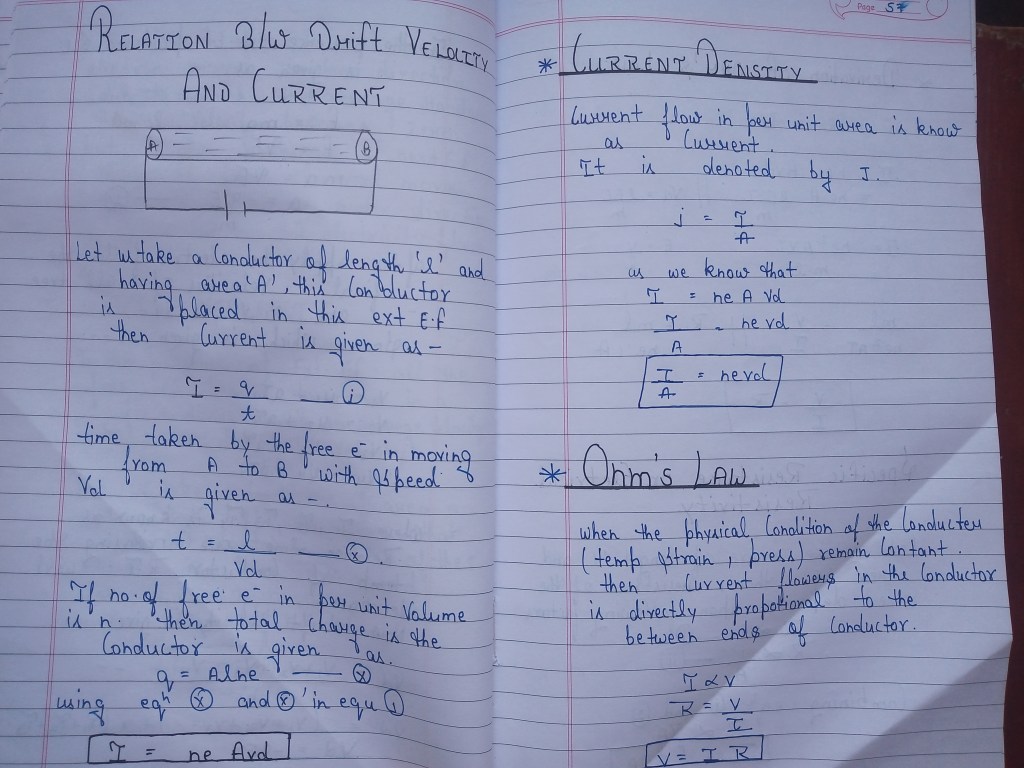 RELATION B/w Drift VELOCITY
AND CURRENT
A B
Let us take a Conductor of length 'l' and
having area 'A', this Conductor
is placed in this ext E.f
then Current is given as —
I = q/t — (i)
time taken by the free e⁻ in moving
from A to B with speed
Vd is given as —
t = l/Vd — (x).
If no. of free e⁻ in per unit Volume
is n. then total charge is the
Conductor is given as.
q = Alne — (x)
using eqn (x) and (x)' in equ (i)
I = ne Avd
Page 57
* CURRENT DENSITY
Current flow in per unit area is know
as Current.
It is denoted by J.
j = I/A
as we know that
I = ne A Vd
I/A = ne vd
I/A = nevd
* Ohm's LAW
when the physical Condition of the Conducter
(temp strain, press) remain Contant.
then Current flowers in the Conductor
is directly propotional to the
between ends of Conductor.
I ∝ V
R = V/I
V = I R